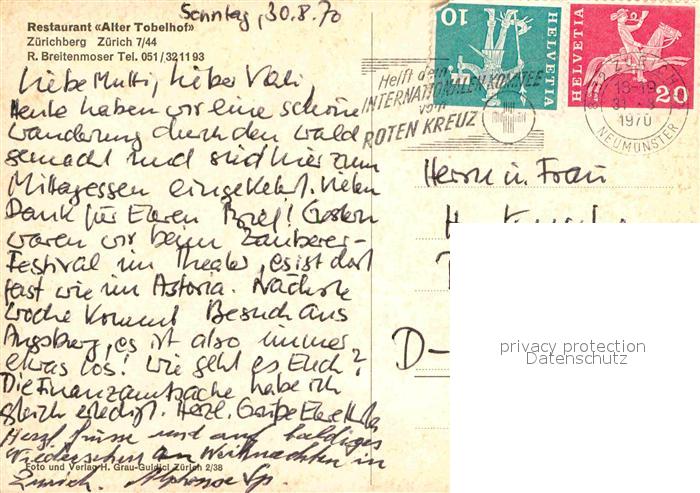 Restaurant «Alter Tobelhof»
Zürichberg Zürich 7/44
R. Breitenmoser Tel. 051/321193
Sonntag, 30.8.70
Liebe Mutti, lieber Vati,
Heute haben wir eine schöne
Wanderung durch den Wald
gemacht und sind hier zum
Mittagessen eingekehrt. Vielen
Dank für Eueren Brief! Gestern
waren wir beim Zauberer-
Festival im Theater, es ist dort
fast wie im Astoria. Nächste
Woche kommt Besuch aus
Augsburg, es ist also immer
etwas los! Wie geht es Euch?
Die Finanzamtsache habe ich
gleich erledigt. Herzl. Grüße Eure
Herzl. Grüsse und auf baldiges
Wiedersehen an Weihnachten in
Zürich. Alphonse Sp.
Foto und Verlag H. Grau-Guldici Zürich 2/38
10 HELVETIA
HELVETIA 20
Helft dem
INTERNATIONALEN KOMITEE
vom
ROTEN KREUZ
ZÜRICH
18-19
31.8.
1970
NEUMÜNSTER
Herrn u. Frau
H.
D-
privacy protection
Datenschutz